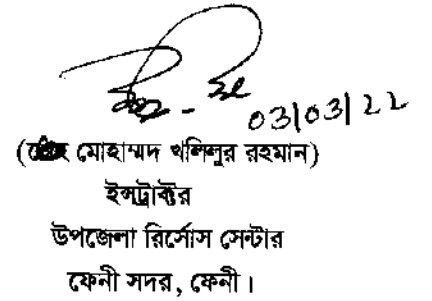 03/03/22
(মোহাম্মদ খলিলুর রহমান)
ইন্সট্রাক্টর
উপজেলা রির্সোস সেন্টার
ফেনী সদর, ফেনী।